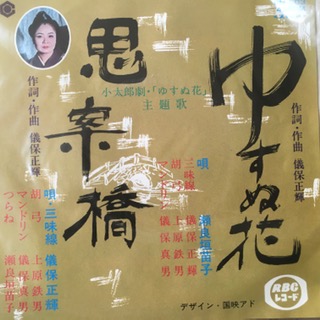 ゆすぬ花
作詞・作曲 儀保正輝
唄 瀬良垣苗子
三味線 儀保正輝
胡弓 上原鉄男
マンドリン 儀保真男
小太郎劇・「ゆすぬ花」
主題歌
思案橋
作詞・作曲 儀保正輝
唄・三味線 儀保正輝
胡弓 上原鉄男
マンドリン 儀保真男
つらね 瀬良垣苗子
デザイン・国映アド
RBC
レコード